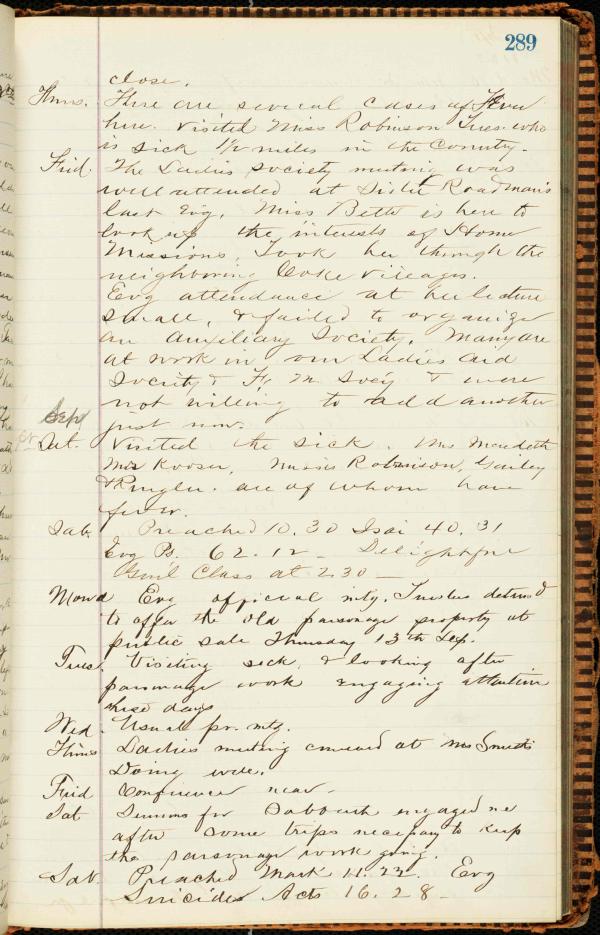 289
close.
Thurs. There are several cases of Fever
here. Visited Miss Robinson Tues. who
is sick 1½ miles in the Country.
Frid. The Ladies Society meeting was
well attended at Sister Roadman's
last Evg. Miss Betts is here to
look up the interests of Home
Missions. Took her through the
neighboring Coke Vileages.
Evg attendance at her lecture
small, & failed to organize
an Auxiliary Society. Many are
at work in our Ladies Aid
Society & F. M. Soc'y & were
not willing to add another
just now.
Sept
Sat. Visited the sick. Mrs Meredeth
Mrs Kooser, Misses Robinson,
& Ringler. all of whom have
fever.
Sab. Preached 10.30 Isai 40.31
Evg Ps. 62.12 - Delightful
Gen'l Class at 2.30 -
Mond Evg official mtg. Trustees determ'd
to offer the old parsonage property at
public sale Thursday 13th Sep.
Tues. Visiting sick, & looking after
parsonage work engaging attention
these days
Wed. Usual pr. mtg.
Thurs Ladies meeting at Mrs
Doing well.
Frid Conference near -
Sat Sermons for Sabbath engaged me
after some trips necessary to keep
the parsonage work going.
Sab. Preached Mark 11.22. Evg
Suicides Acts 16.28 -